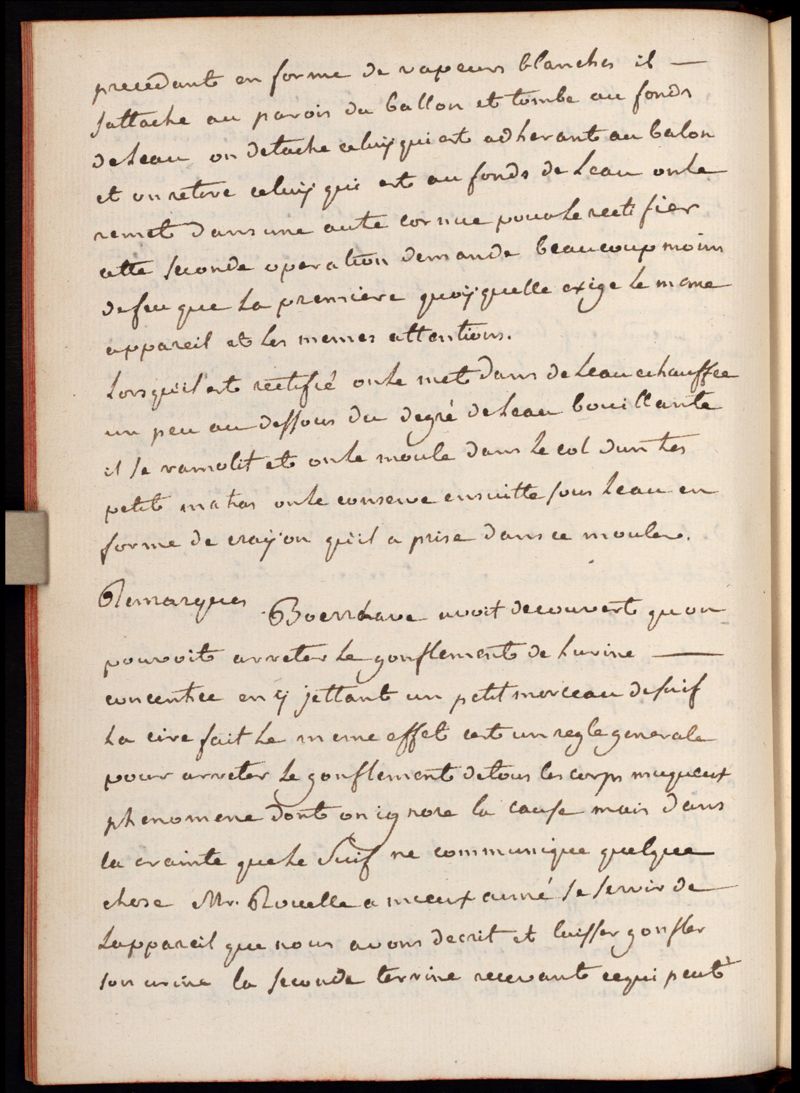 precedant en forme de vapeurs blanches il —
sattache au parois du ballon et tombe au fonds
de leau on detache celuy qui est adherant au balon
et on retire celuy qui est au fonds de leau on le
remet dans une autre cornue pour le rectifier
cette seconde operation demande beaucoup moins
de feu que la premiere quoyquelle exige le meme
appareil et les memes attentions.
Lorsquil est rectifié on le met dans de leau echauffee
un peu au dessous du degré de leau bouillante
il se ramolit et on le moule dans le col dun tres
petit matras on le conserve ensuitte sous leau en
forme de crayon qu'il a prise dans ce moule.
Remarques Boerrhave avoit decouvert quon
pouvoit arreter le gonflement de lurine —
concentree en y jettant un petit morceau de suif
La cire fait le meme effet cest un regle generale
pour arreter le gonflement de tous les corps muqueux
phenomene dont on ignore la cause mais dans
la crainte que le suif ne communique quelque
chose Mr. Rouelle a mieux aimé se servir de
Lappareil que nous avons decrit et laisser gonfler
son urine la seconde terrine recevant ce qui peut